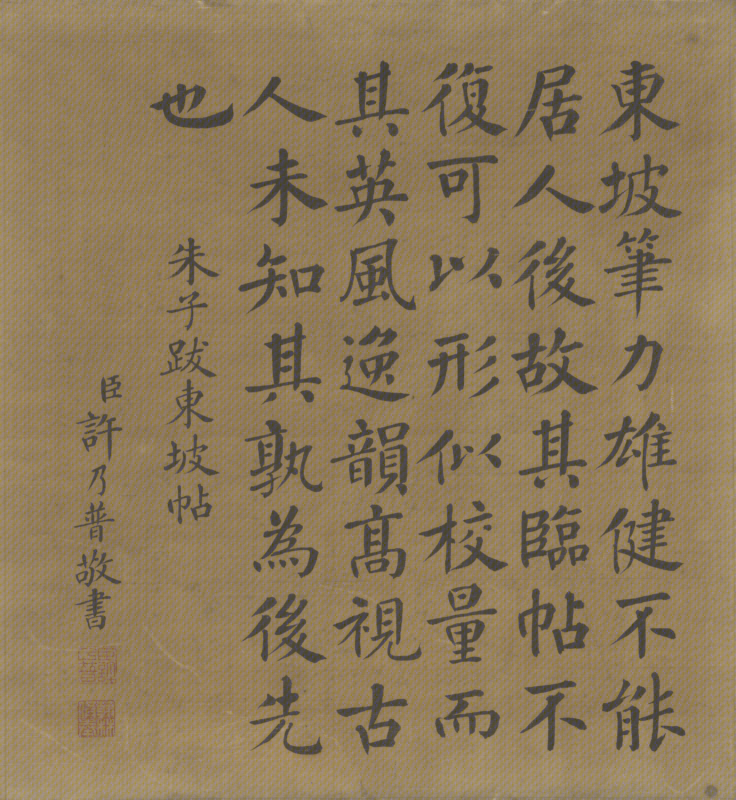 東坡筆力雄健不能
居人後故其臨帖不
復可以形似校量而
其英風逸韻髙視古
人未知其孰為後先
也
朱子跋東坡帖
臣許乃普敬書